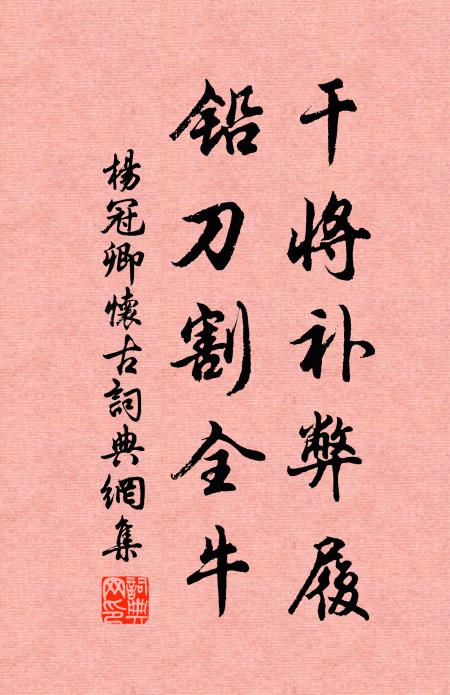 干将补弊履
铅刀割全牛
楊冠卿懷古詞典網集
詞典网印